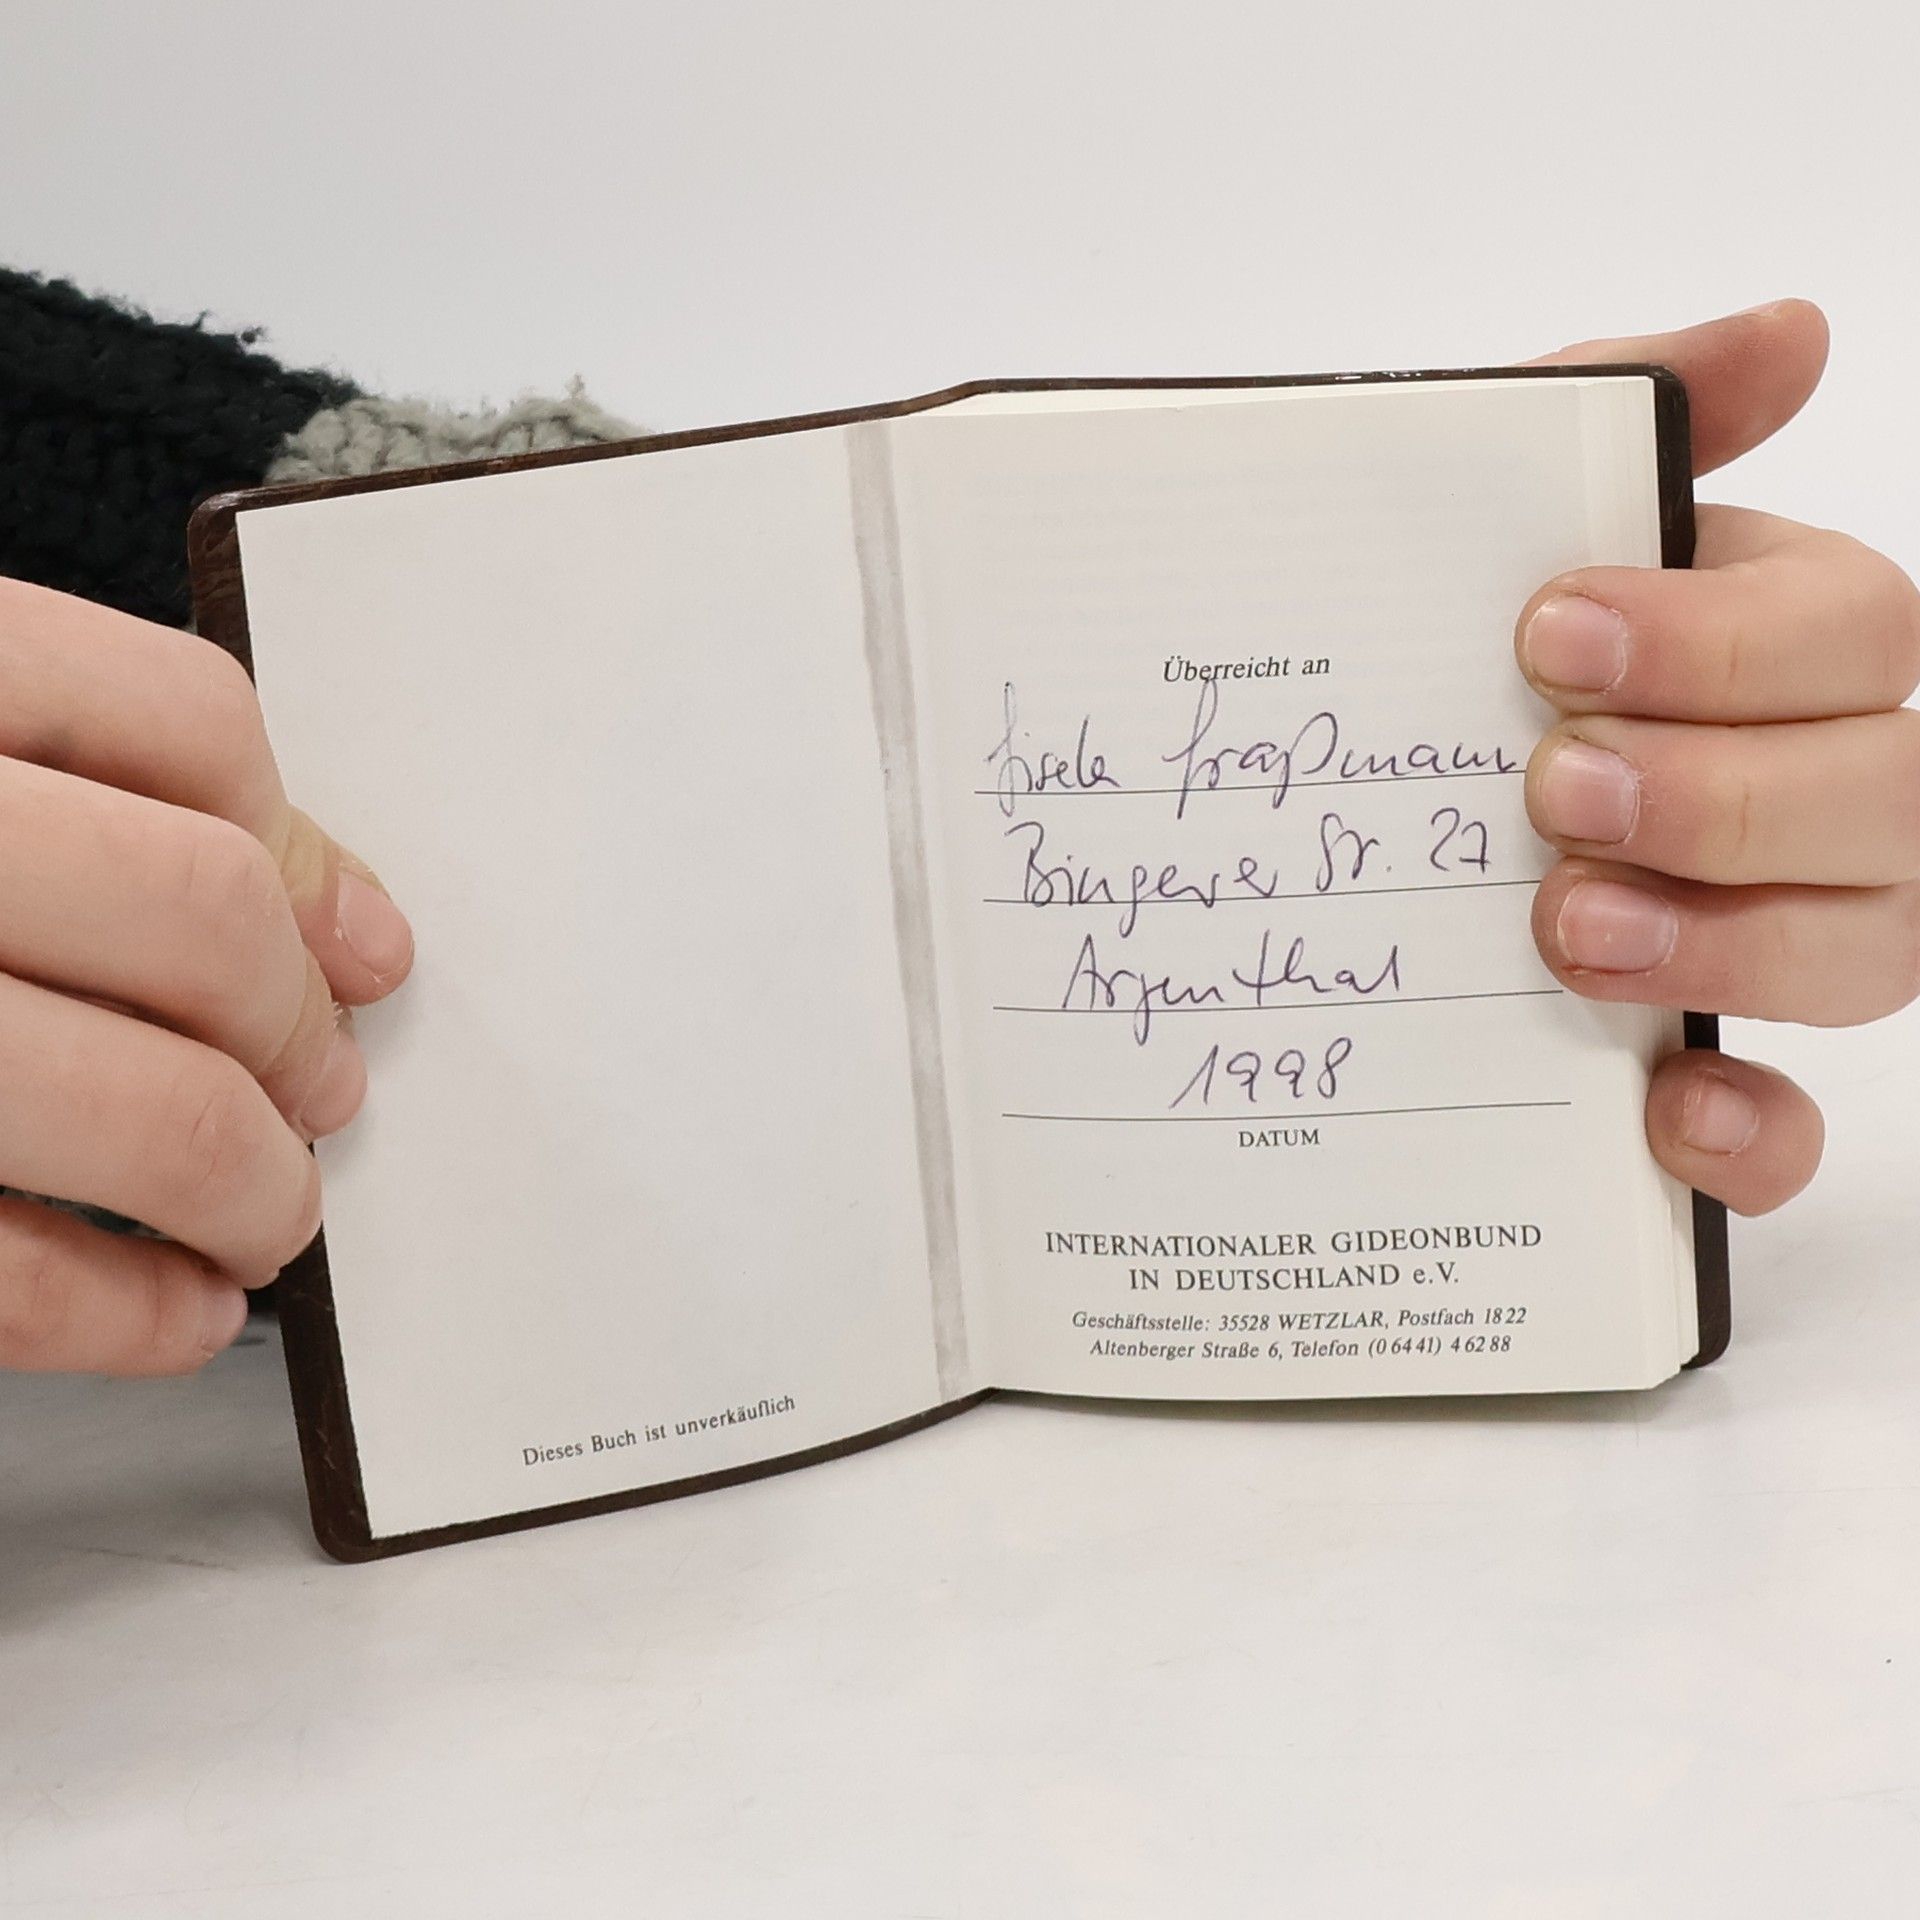 Dieses Buch ist unverkäuflich
Überreicht an
Gisela Graßmann
Bingener Str. 27
Argenthal
1998
DATUM
INTERNATIONALER GIDEONBUND
IN DEUTSCHLAND e.V.
Geschäftsstelle: 35528 WETZLAR, Postfach 1822
Altenberger Straße 6, Telefon (06441) 46288